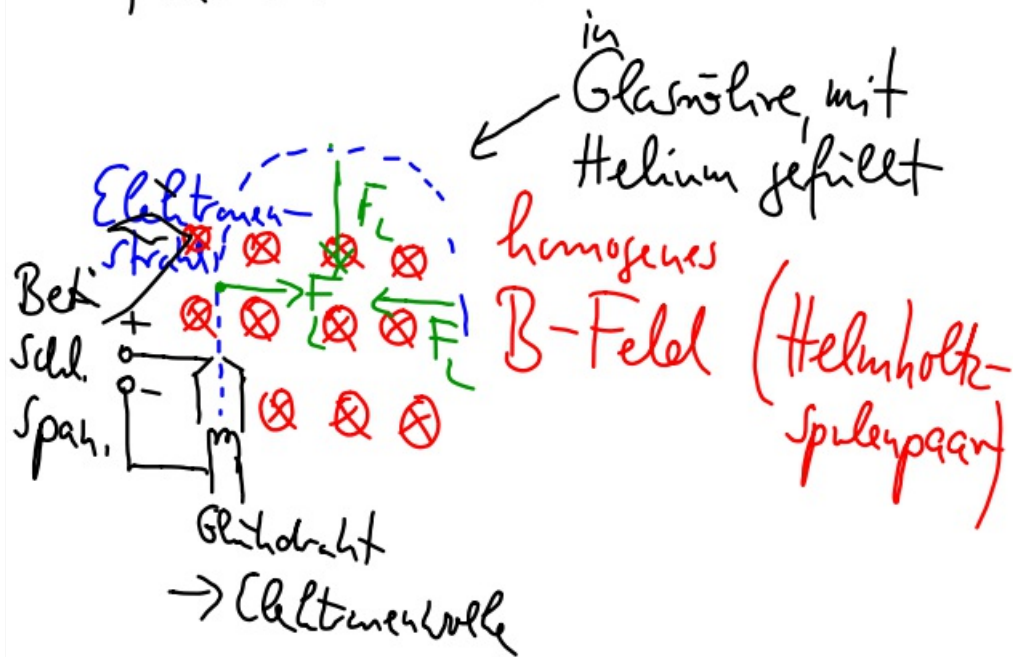 in
Glasröhre, mit
Helium gefüllt
Elektronen-
strahl
F_L
homogenes
B-Feld (Helmholtz-
spulenpaar)
F_L
F_L
Besch.
+
-
span.
Glühdraht
→ Elektronenwolke